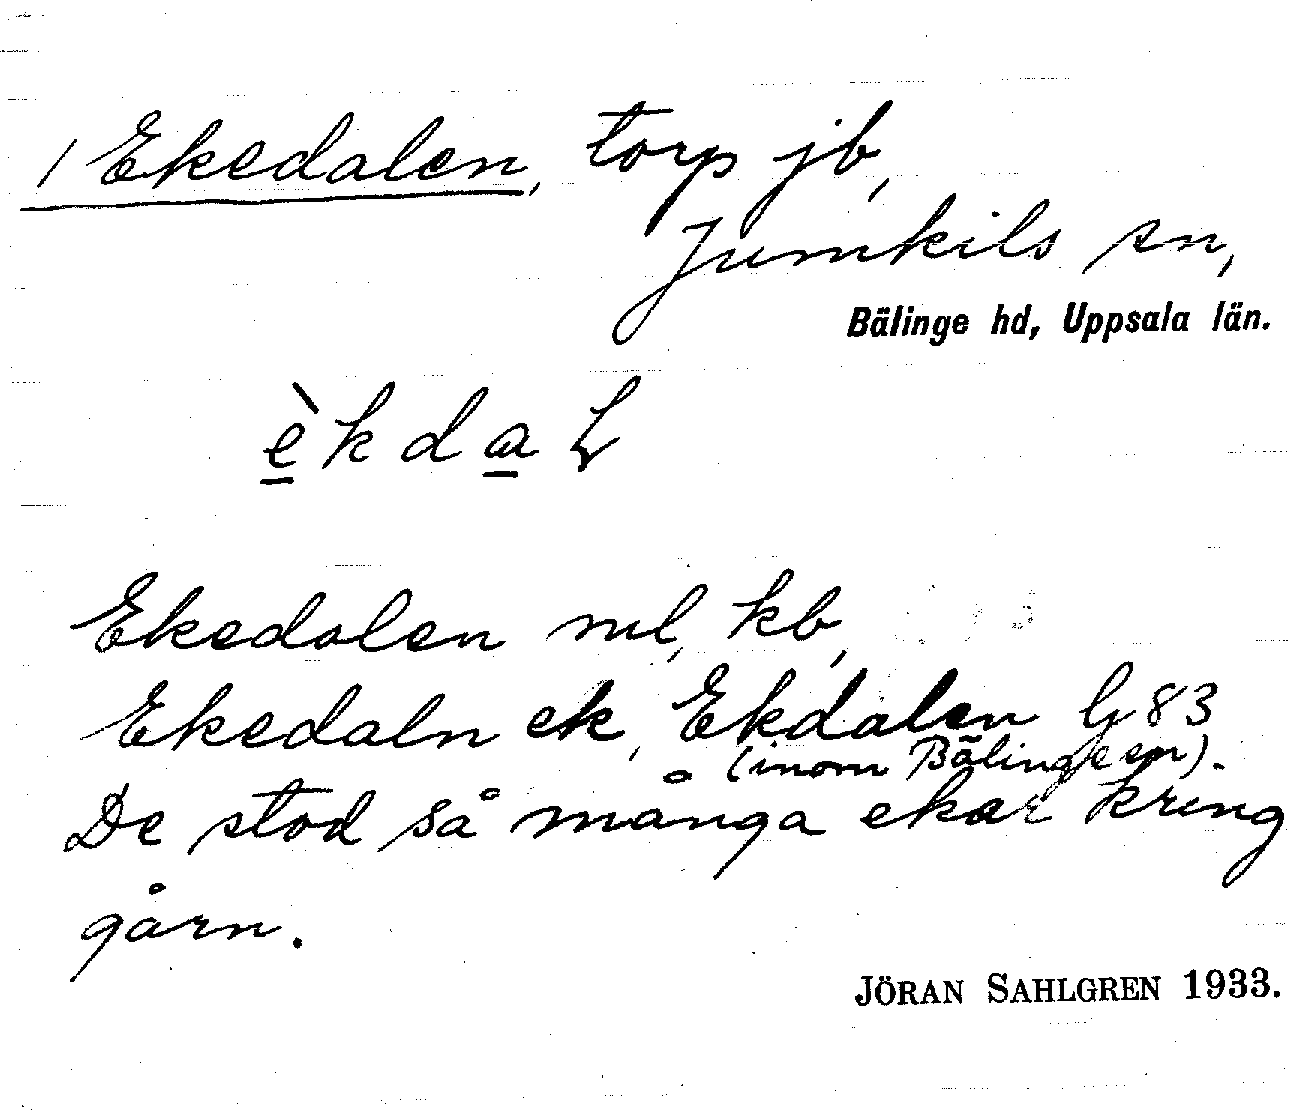 1 Ekedalen, torp jb,
Jumkils sn,
Bälinge hd, Uppsala län.
èkdaL
Ekedalen ml, kb,
Ekedaln ek, Ekdalen G 83
(inom Bälinge sn).
De stod så många ekar kring
gårn.
JÖRAN SAHLGREN 1933.